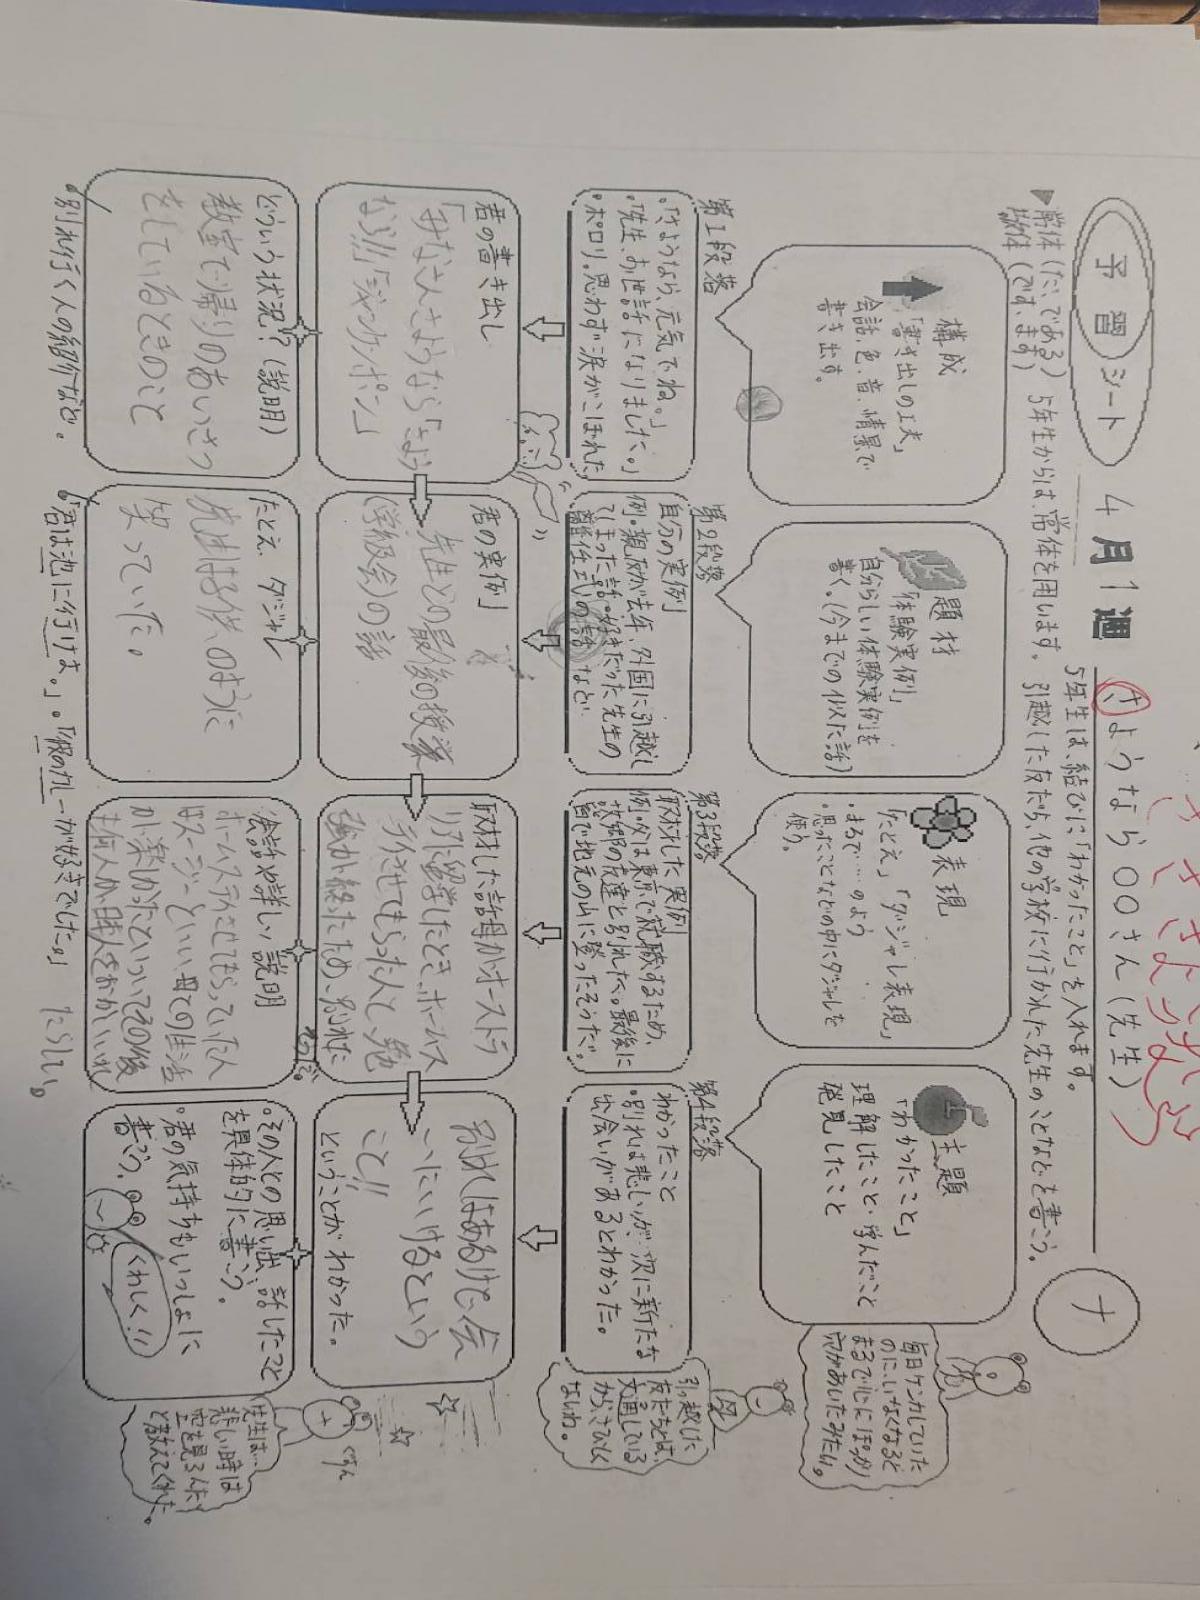 予習シート
4月1週
さようなら○○さん(先生)
ナ
さようなら
5年生は、結びに「わかったこと」を入れます。
常体(だ、である)
敬体(です、ます)
5年生からは、常体を用います。
引越した友だち、他の学校に行かれた先生のことなどを書こう。
構成
「書き出しの工夫」
会話、色、音、情景で
書き出す。
題材
「体験実例」
自分らしい体験実例を
書く。(今までの似た話)
表現
「たとえ」「ダジャレ表現」
・まるで…のよう
・思ったことなどの中にダジャレを
使う。
主題
「わかったこと」
理解したこと・学んだこと
発見したこと
毎日ケンカしていた
のに、いなくなると
まるで心にぽっかり
穴があいたみたい。
第1段落
・「さようなら、元気でね。」
・「先生、お世話になりました。」
・ポロリ。思わず涙がこぼれた
第2段落
自分の実例
例・親友が去年、外国に引越し
てしまった話。・好きだった先生の
離任式の話 など
第3段落
取材した実例
例・父は東京で就職するため、
故郷の友達と別れた。最後に
皆で地元の山に登ったそうだ。
第4段落
わかったこと
・別れは悲しいが、次に新たな
出会いがあるとわかった。
引っ越した
友だちとは、
文通している
から、さびしく
ないね。
君の書き出し
「みなさんさようなら「さよう
なら!!」「ジャンケンポン」
君の実例
先生との最後の授業
(学級会)の話
取材した話母がオーストラ
リアに留学したとき、ホームス
テイさせてもらった人と勉
強が終ったため、別れた
そうだ。
別れはあるけど、会
いにいけるという
こと!!
ということがわかった。
どういう状況?(説明)
教室で帰りのあいさつ
をしているときのこと
たとえ、ダジャレ
笑っていた。
会話や詳しい説明
ホームステイさせてもらっていた人
はスージーといい、母との生活
が楽しかったといっていてその後
も何人か日本人をおかいいれ
たらしい。
・その人との思い出、話したこと
を具体的に書こう。
・君の気持ちもいっしょに
書こう。
くわしく!!
先生は…
悲しい時は
空を見るんだよ
と教えてくれた。
・別れ行く人の紹介など。
・「君は池に行けよ。」・「お別れのカレーが好きでした。」